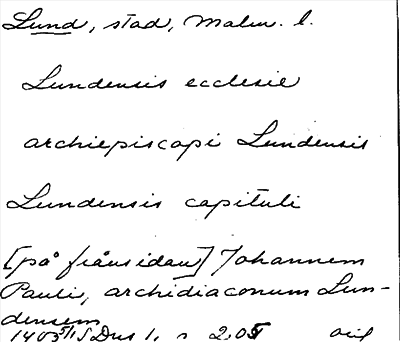 Lund, stad, Malm. l.
Lundensis ecclesie
archiepiscopi Lundensis
Lundensis capituli
[på frånsidan] Johannem
Pauli, archidiaconum Lun-
densem
1403 5/1 SDns 1, s 205 orig